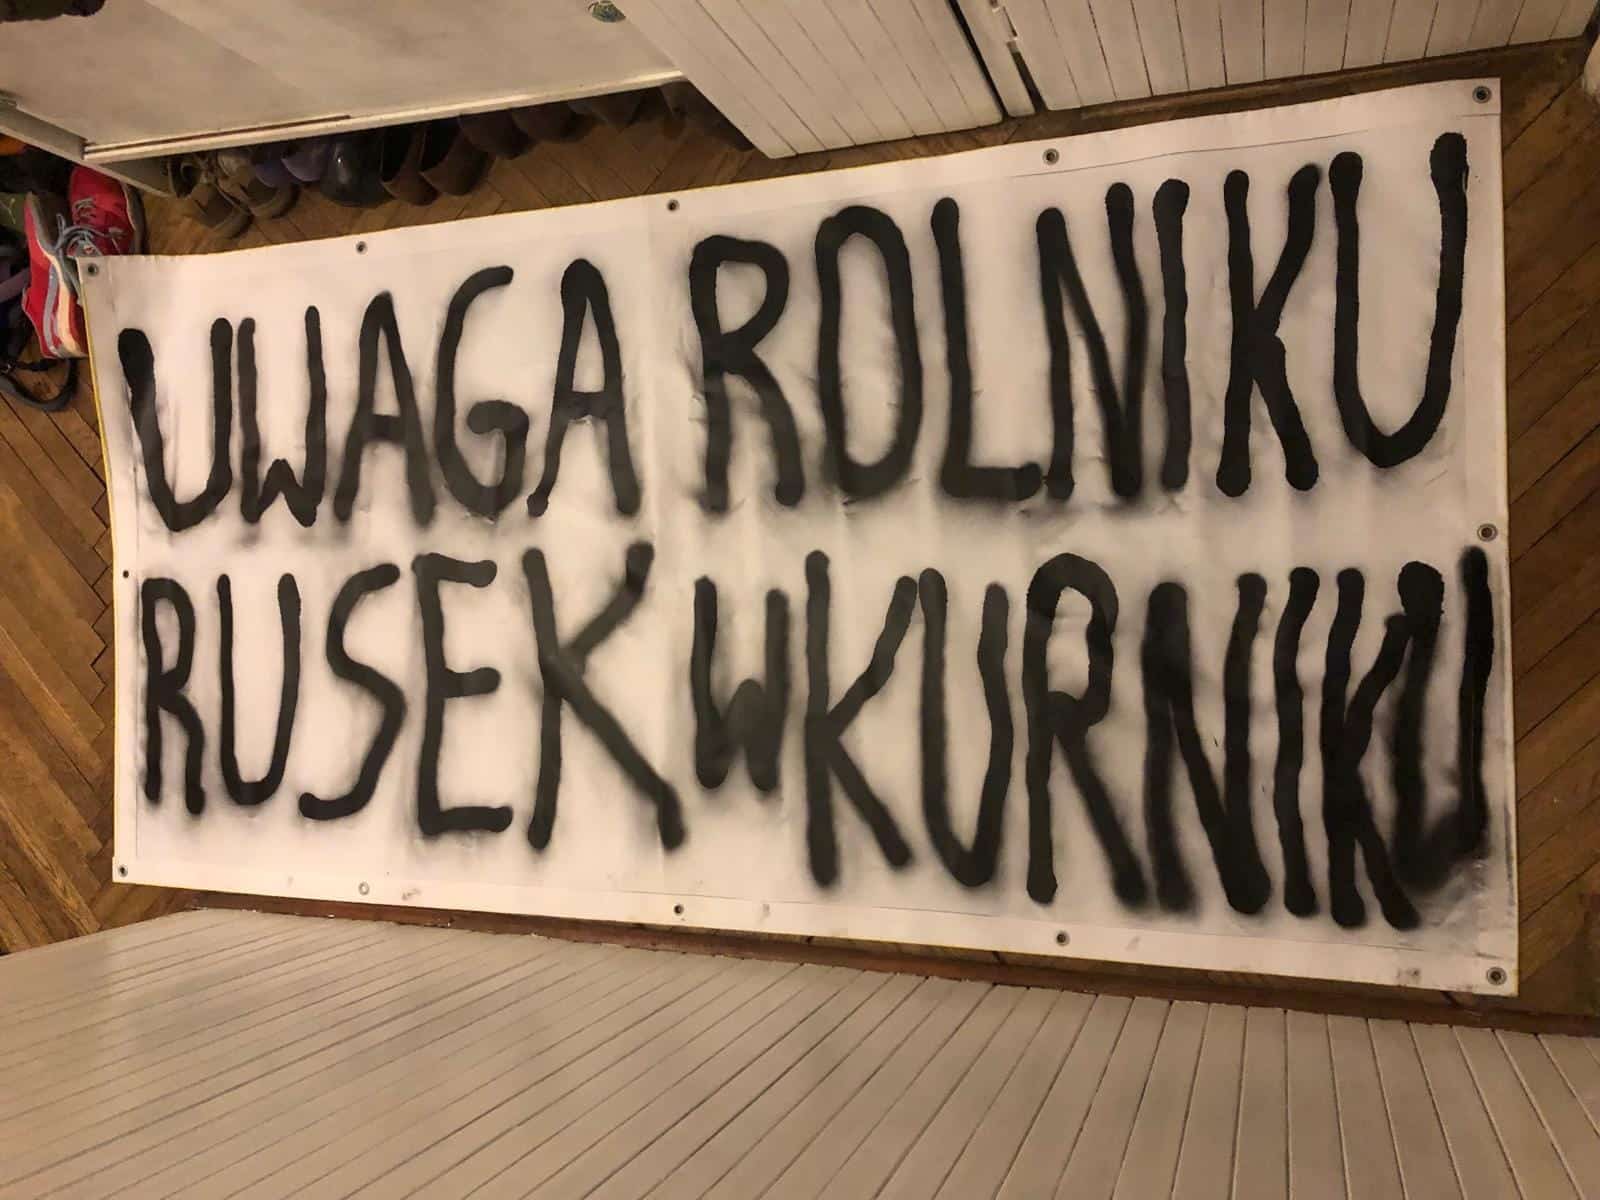 UWAGA ROLNIKU
RUSEK W KURNIKU